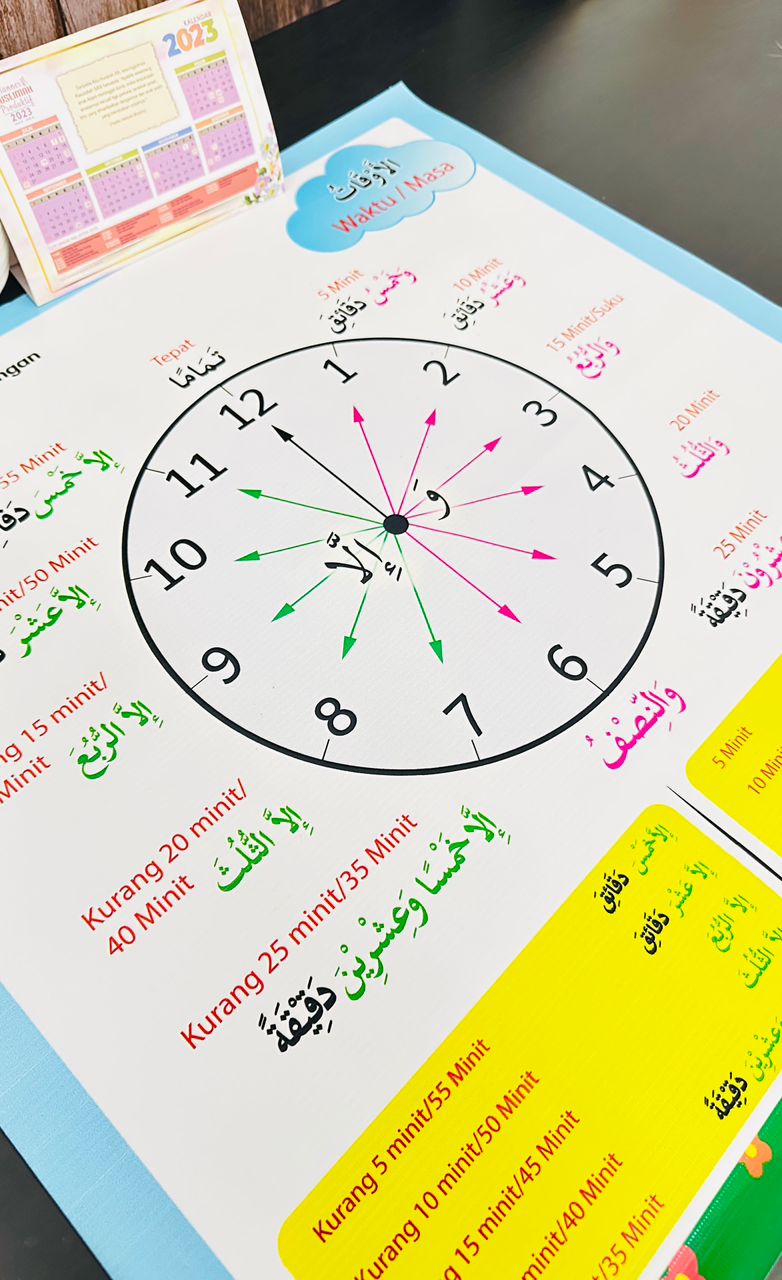 KALENDAR
2023
Planner
MUSLIMAH
Produktif
2023
الأَوْقَاتُ
Waktu / Masa
5 Minit
وَخَمْسُ دَقَائِقَ
10 Minit
وَعَشْرُ دَقَائِقَ
15 Minit/Suku
وَالرُّبْعُ
20 Minit
وَالثُّلُثُ
25 Minit
دَقِيْقَةً
وَالنِّصْفُ
Tepat
تَمَامًا
12
1
2
3
4
5
6
7
8
9
10
11
وَ
إِلَّا
55 Minit
إِلاَّ خَمْسَ
50 Minit
إِلاَّ عَشْرَ
15 minit/
Minit
إِلاَّ الرُّبُعَ
Kurang 20 minit/
40 Minit
إِلَّا الثُّلُثَ
Kurang 25 minit/35 Minit
إِلَّا خَمْسًا وَعِشْرِيْنَ دَقِيْقَةً
5 Minit
10 Minit
Kurang 5 minit/55 Minit
إِلاَّ خَمْسَ دَقَائِقَ
Kurang 10 minit/50 Minit
إِلاَّ عَشْرَ دَقَائِقَ
15 minit/45 Minit
إِلاَّ الرُّبُعَ
minit/40 Minit
إِلاَّ الثُّلُثَ
35 Minit
وَعِشْرِيْنَ دَقِيْقَةً